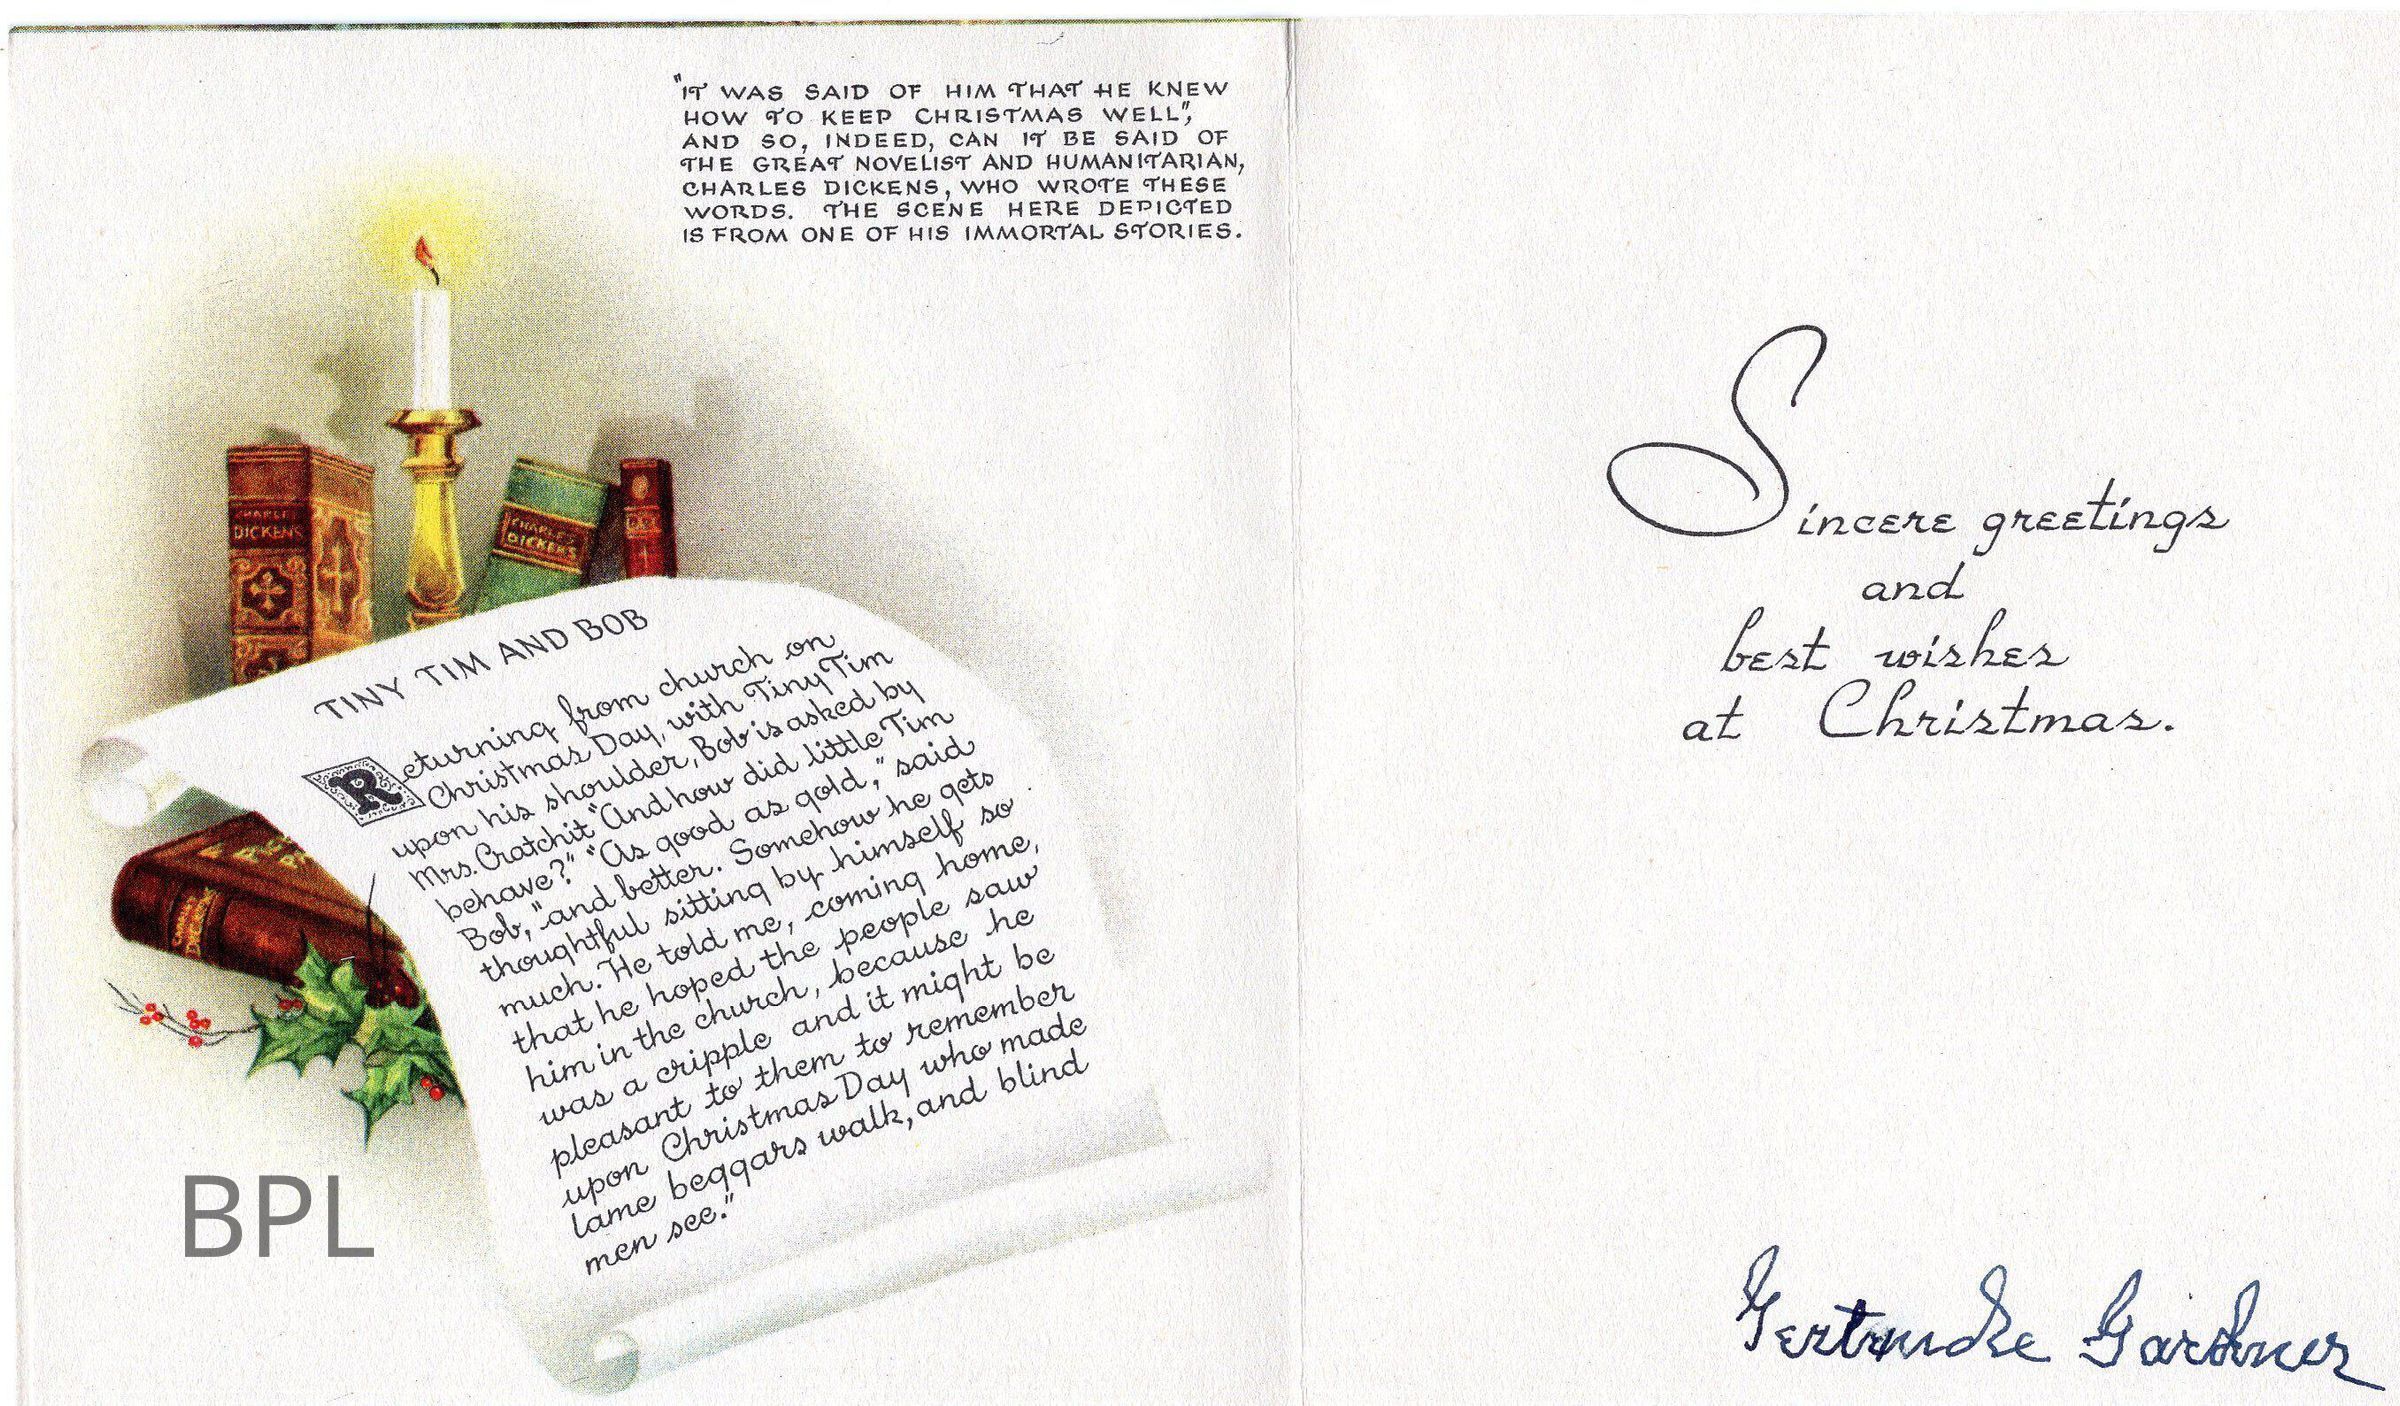 "IT WAS SAID OF HIM THAT HE KNEW
HOW TO KEEP CHRISTMAS WELL",
AND SO, INDEED, CAN IT BE SAID OF
THE GREAT NOVELIST AND HUMANITARIAN,
CHARLES DICKENS, WHO WROTE THESE
WORDS. THE SCENE HERE DEPICTED
IS FROM ONE OF HIS IMMORTAL STORIES.
CHARLES
DICKENS
CHARLES
DICKENS
TINY TIM AND BOB
Returning from church on
Christmas Day, with Tiny Tim
upon his shoulder, Bob is asked by
Mrs. Cratchit "And how did little Tim
behave?" "As good as gold," said
Bob, "and better. Somehow he gets
thoughtful sitting by himself so
much. He told me, coming home,
that he hoped the people saw
him in the church, because he
was a cripple and it might be
pleasant to them to remember
upon Christmas Day who made
lame beggars walk, and blind
men see."
CHARLES
DICKENS
BPL
Sincere greetings
and
best wishes
at Christmas.
Gertrude Gardner